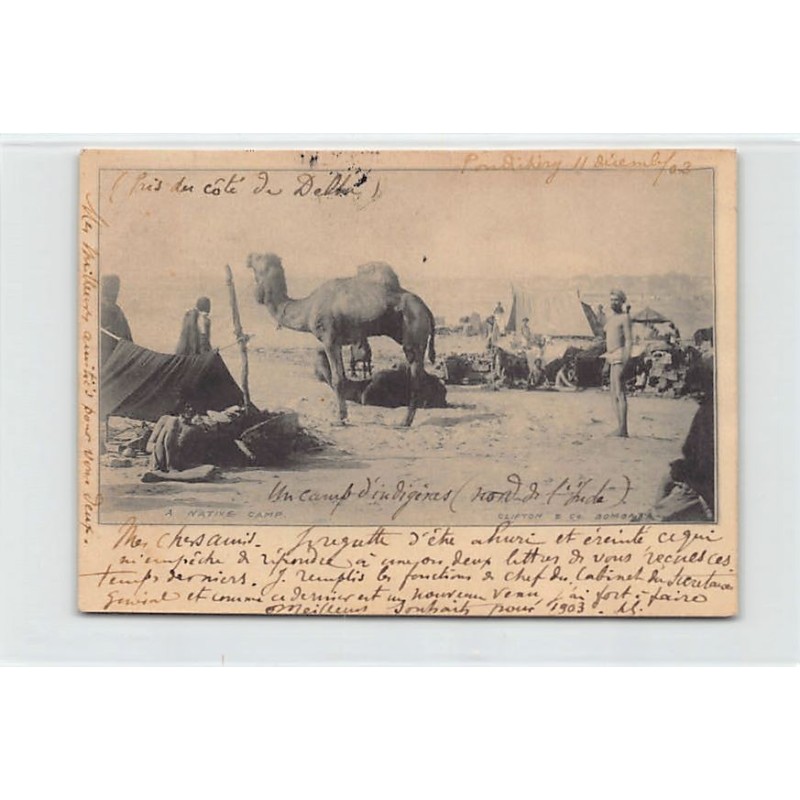 Pondichéry 11 décembre/02
(Pris du côté de Delhi)
Un camp d'indigènes (nord de l'Inde).
A NATIVE CAMP.
CLIFTON & Co. BOMBAY
Mes chers amis. Je regrette d'être ahuri et éreinté ce qui
m'empêche de répondre à une ou deux lettres de vous reçues ces
temps derniers. Je remplis les fonctions de chef du Cabinet du Secrétaire
général et comme ce dernier est un nouveau venu, j'ai fort à faire
Meilleurs souhaits pour 1903.
Mes meilleures amitiés pour vous deux.